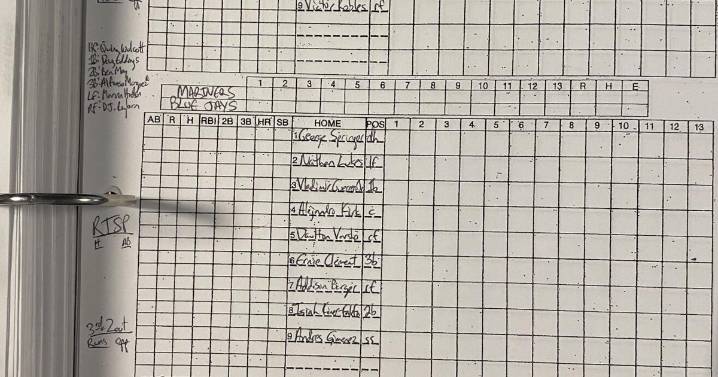 9 Victor Robles rf
HP: Quinn Wolcott
1B: Doug Eddings
2B: Ben May
3B: Alfonso Marquez
LF: Marvin Hudson
RF: DJ Reyburn
1 2 3 4 5 6 7 8 9 10 11 12 13 R H E
MARINERS
BLUE JAYS
AB R H RBI 2B 3B HR SB HOME POS 1 2 3 4 5 6 7 8 9 10 11 12 13
1 George Springer dh
2 Nathan Lukes lf
3 Vladimir Guerrero 1b
4 Alejandro Kirk c
5 Daulton Varsho cf
6 Ernie Clement 3b
7 Addison Barger rf
8 Isiah Kiner-Falefa 2b
9 Andres Gimenez ss
RISP
H AB
3rd 2out
Runs opp